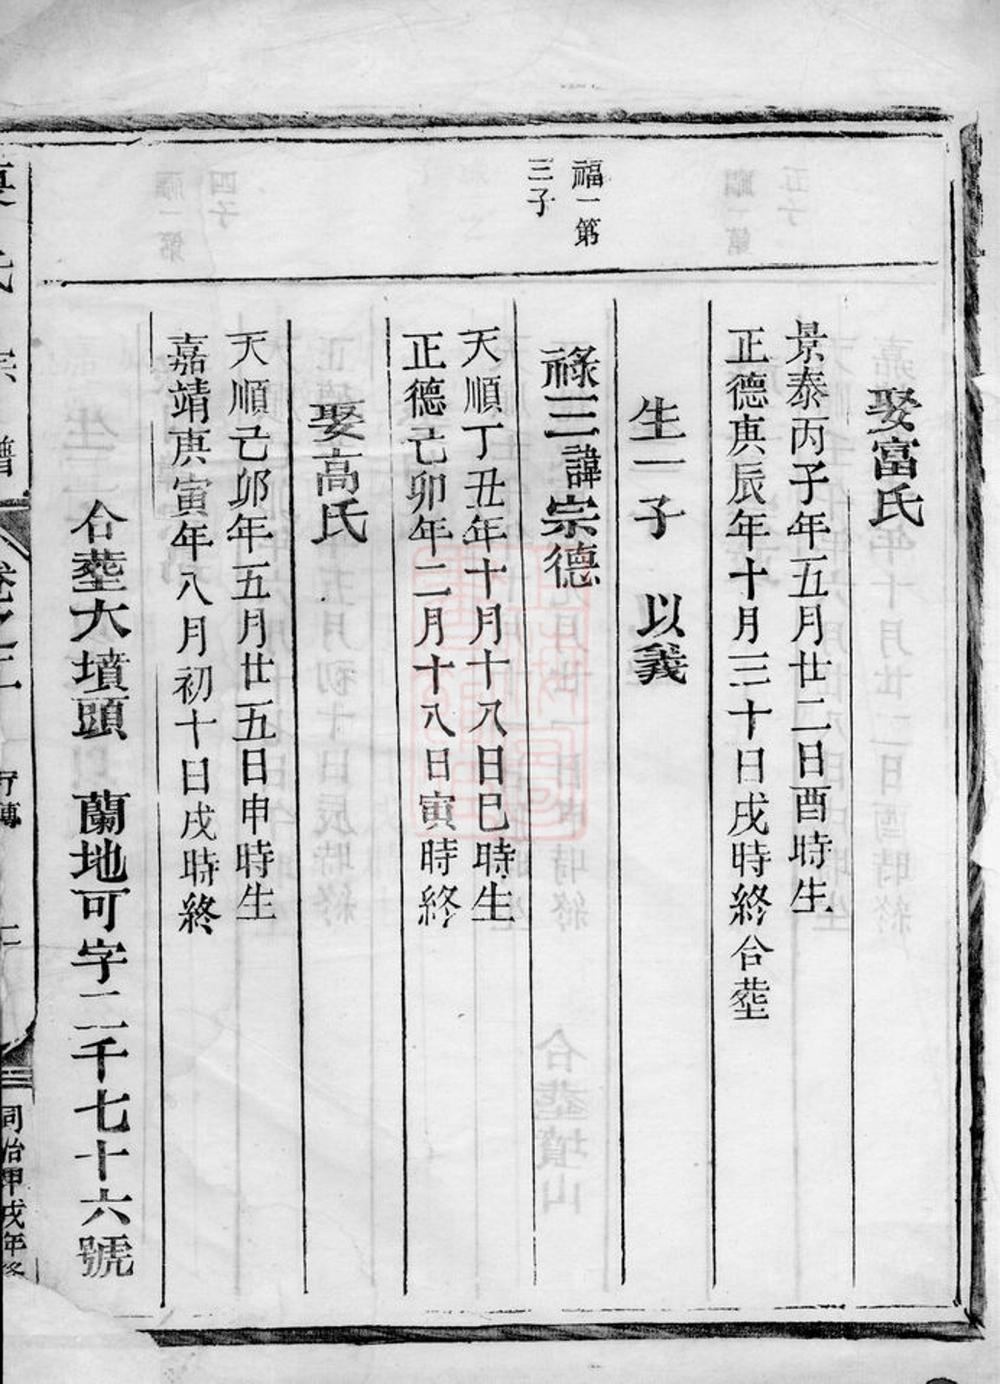 娶富氏
景泰丙子年五月廿二日酉時生
正德庚辰年十月三十日戌時終合塟
生一子　以義
福一第
三子
祿三諱宗德
天順丁丑年十月十八日巳時生
正德己卯年二月十八日寅時終
娶高氏
天順己卯年五月廿五日申時生
嘉靖庚寅年八月初十日戌時終
合塟大墳頭　蘭地可字二千七十六號
氏宗譜
卷之二
行傳
同治甲戌年修